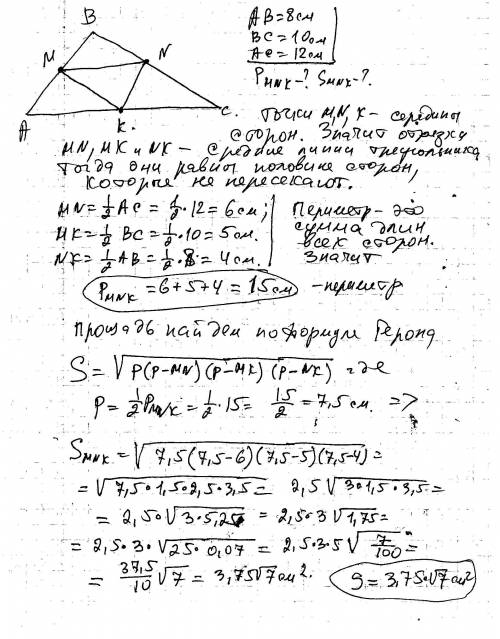 B
M
N
A
K.
C.
AB=8см
BC=10см
AC=12см
P_MNK-? S_MNK-?.
Точки M,N,K - середины
сторон. Значит отрезки
MN, MK и NK - средние линии треугольника
Тогда они равны половине сторон,
которые не пересекают.
MN=½AC=½·12=6см;
MK=½BC=½·10=5см.
NK=½AB=½·8=4см.
Периметр-это
сумма длин
всех сторон.
Значит
P_MNK=6+5+4=15см -периметр
Площадь найдем по формуле Герона
S=√(p(p-MN)(p-MK)(p-NK)) где
p=½P_MNK=½·15=15/2=7,5см. =>
S_MNK=√(7,5(7,5-6)(7,5-5)(7,5-4))=
=√(7,5·1,5·2,5·3,5)=2,5√(3·1,5·3,5)=
=2,5·√(3·5,25)=2,5·3√(1,75)=
=2,5·3·√(25·0,07)=2,5·3·5√(7/100)=
=37,5/10√7=3,75√7см². S=3,75·√7см²